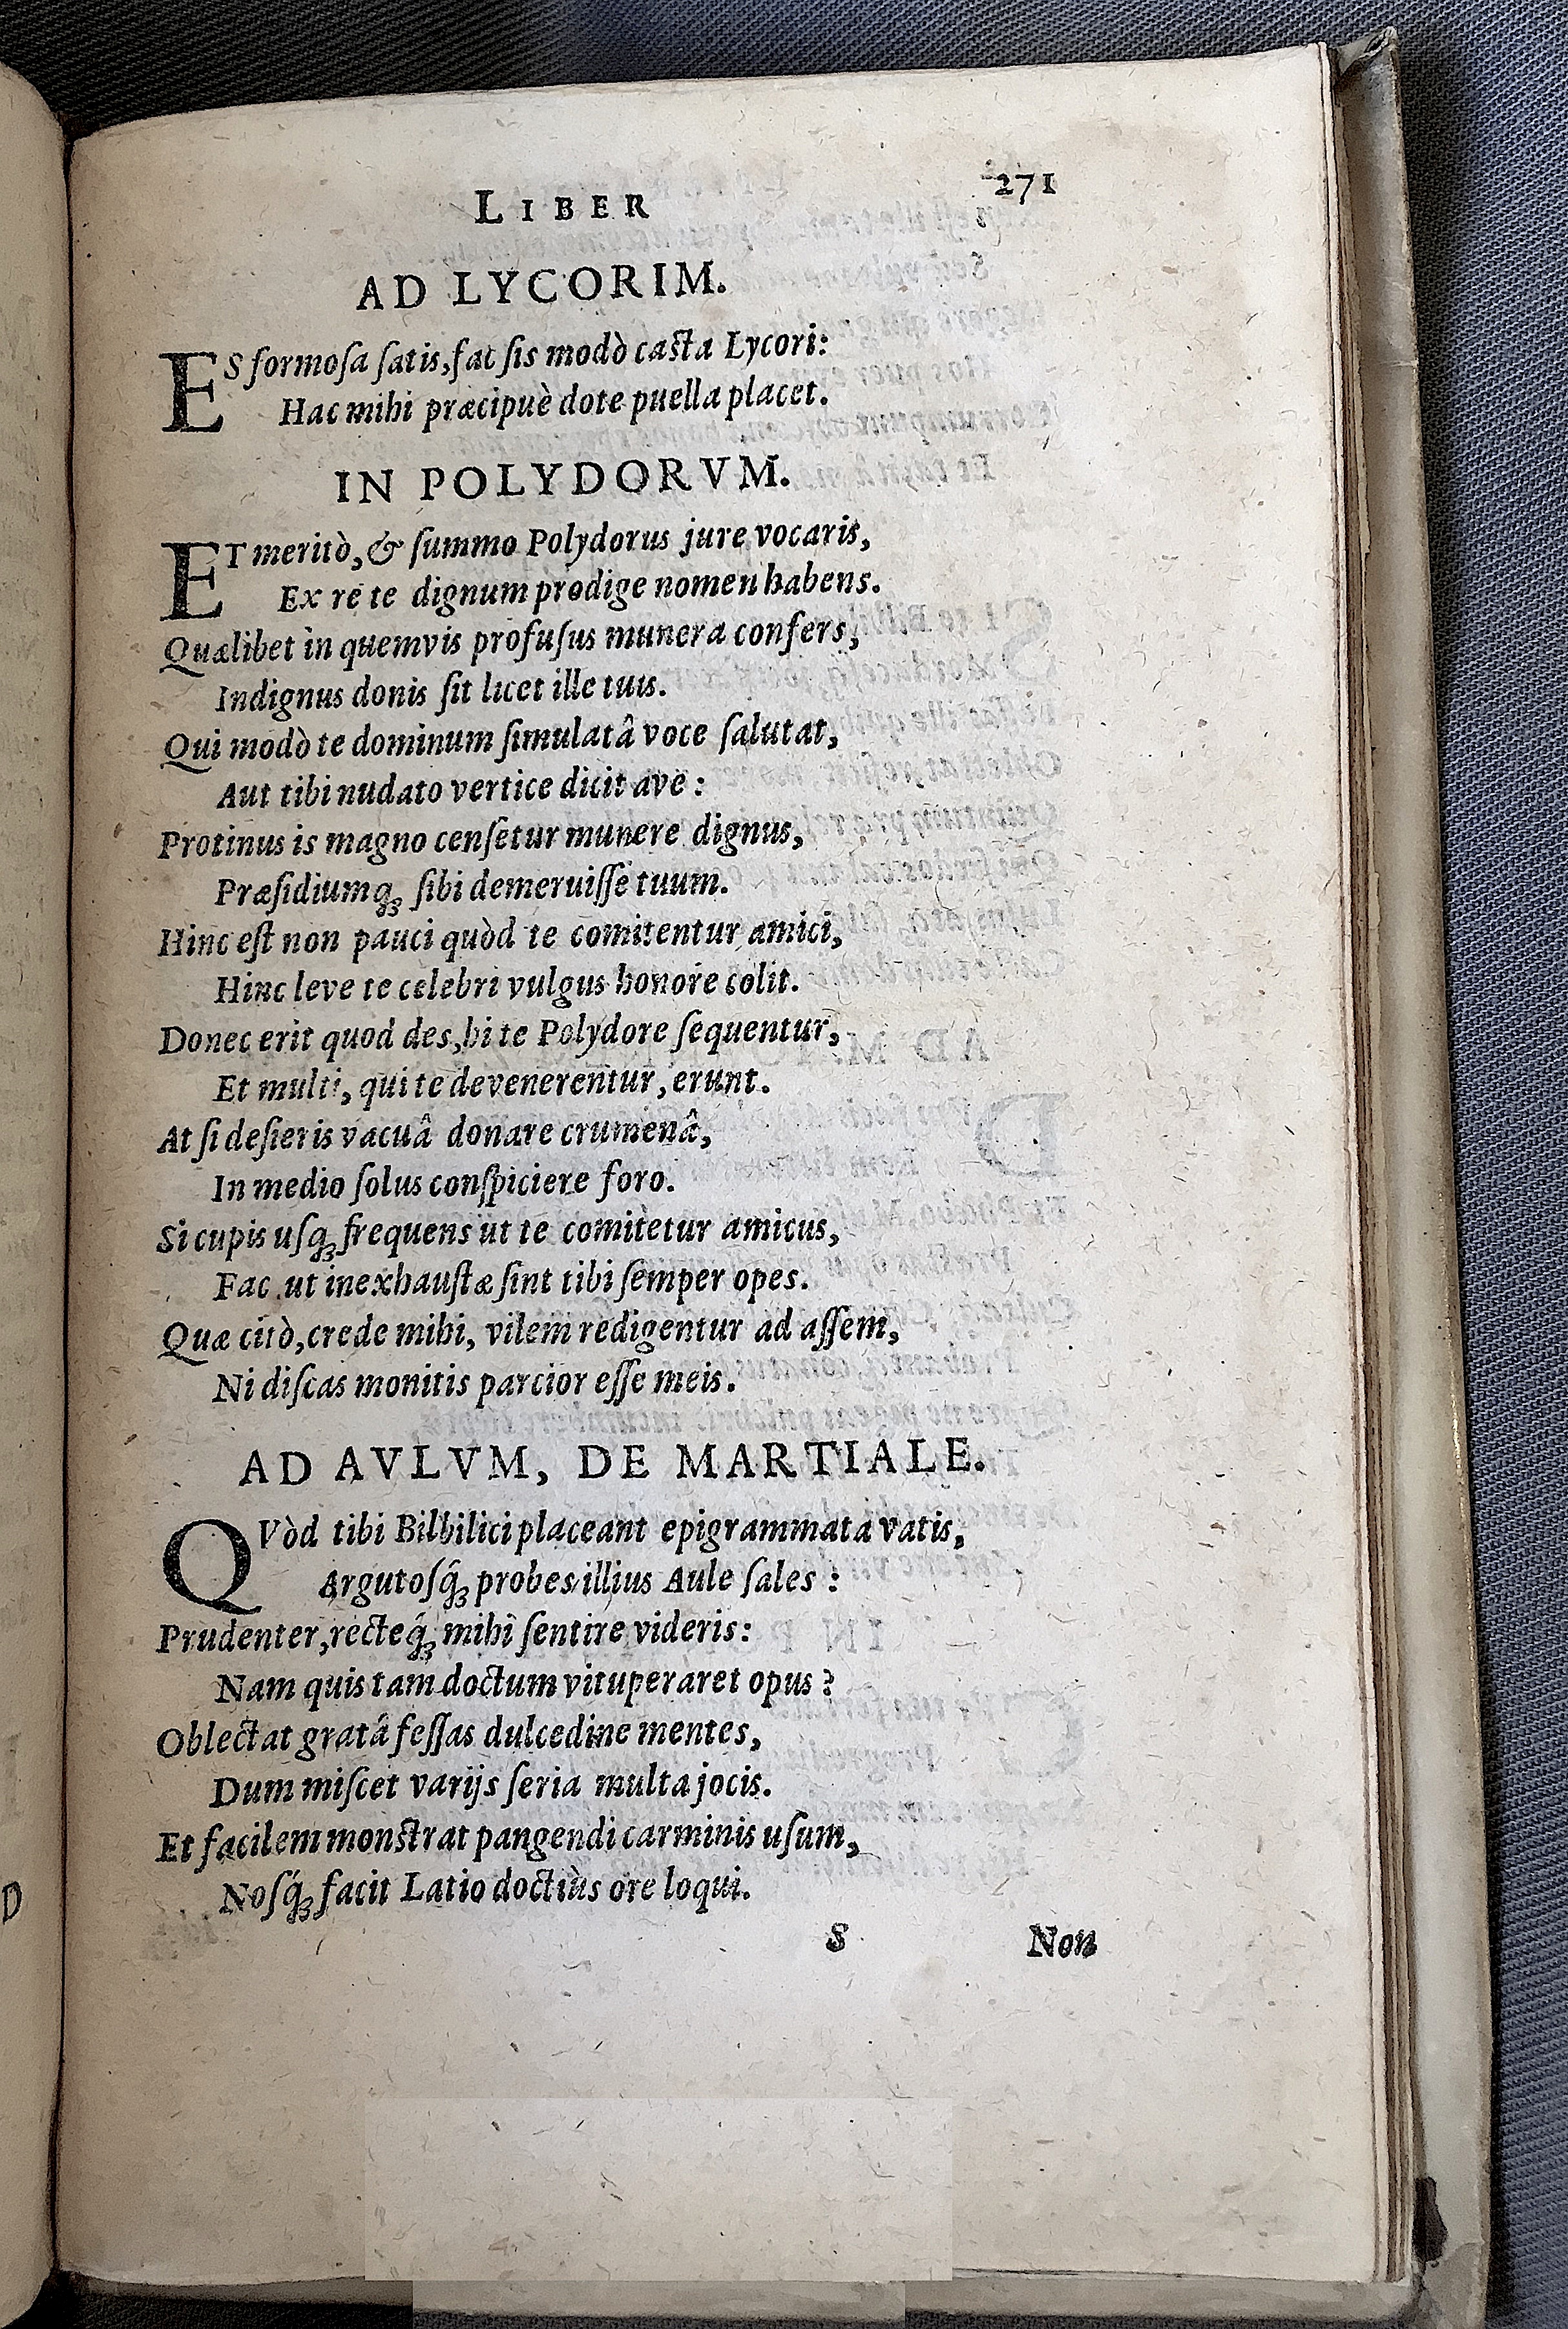 LIBER 271
AD LYCORIM.
ES formoſa ſatis, fac ſis modò caſta Lycori:
Hac mihi præcipuè dote puella placet.
IN POLYDORVM.
ET meritò, & ſummo Polydorus jure vocaris,
Ex re te dignum prodige nomen habens.
Quælibet in quemvis profuſus munera confers,
Indignus donis ſit licet ille tuis.
Qui modò te dominum ſimulatâ voce ſalutat,
Aut tibi nudato vertice dicit ave:
Protinus is magno cenſetur munere dignus,
Præſidiumq́ꝫ ſibi demeruiſſe tuum.
Hinc eſt non pauci quòd te comitentur amici,
Hinc leve te celebri vulgus honore colit.
Donec erit quod des, hi te Polydore ſequentur,
Et multi, qui te devenerentur, erunt.
At ſi deſieris vacuâ donare crumenâ,
In medio ſolus conſpiciere foro.
Si cupis uſqꝫ frequens ut te comitetur amicus,
Fac ut inexhauſtæ ſint tibi ſemper opes.
Quæ citò, crede mihi, vilem redigentur ad aſſem,
Ni diſcas monitis parcior eſſe meis.
AD AVLVM, DE MARTIALE.
QVòd tibi Bilbilici placeant epigrammata vatis,
Argutoſq́ꝫ probes illius Aule ſales:
Prudenter, recteq́ꝫ mihi ſentire videris:
Nam quis tam doctum vituperaret opus?
Oblectat gratâ feſſas dulcedine mentes,
Dum miſcet varijs ſeria multa jocis.
Et facilem monſtrat pangendi carminis uſum,
Noſq́ꝫ facit Latio doctiùs ore loqui.
S Non
D